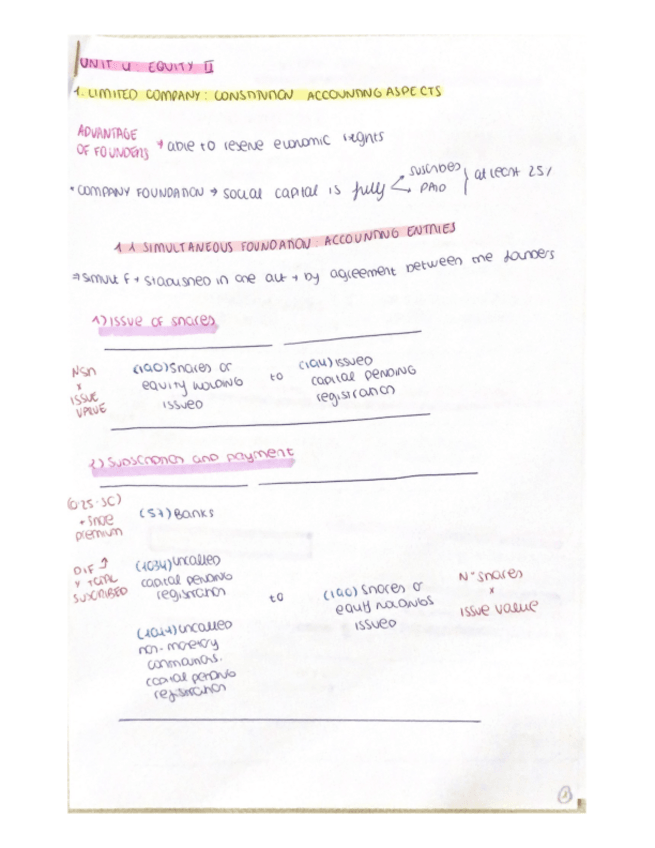 UNIT 4: EQUITY II
1. LIMITED COMPANY: CONSTITUTION ACCOUNTING ASPECTS
ADVANTAGE
OF FOUNDERS → able to reserve economic rights
• COMPANY FOUNDATION → social capital is fully
suscribed
PAID
at least 25%
1.1 SIMULTANEOUS FOUNDATION: ACCOUNTING ENTRIES
⇒ simult f → stablished in one act → by agreement between the founders
1) Issue of shares
NSh
x
ISSUE
VALUE
(190) Shares or
equity holding
issued
to
(194) Issued
capital pending
registration
2) Subscription and payment
(0'25·SC)
+ share
premium
(57) Banks
DIF ↑
Y TOTAL
SUSCRIBED
(1034) Uncalled
capital pending
registration
to
(190) Shares or
equity holdings
issued
Nº shares
x
issue value
(1044) Uncalled
non-monetary
capital pending
registration
1